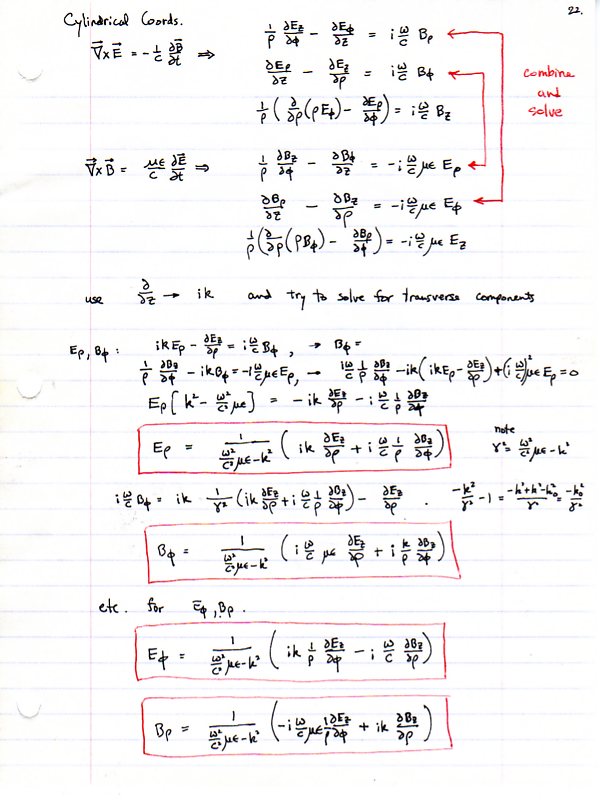 22.
Cylindrical Coords.
∇⃗×E⃗ = -1/c ∂B⃗/∂t ⇒ 1/ρ ∂E_z/∂φ - ∂E_φ/∂z = i ω/c B_ρ
∂E_ρ/∂z - ∂E_z/∂ρ = i ω/c B_φ
1/ρ ( ∂/∂ρ (ρE_φ) - ∂E_ρ/∂φ ) = i ω/c B_z
combine
and
solve
∇⃗×B⃗ = με/c ∂E⃗/∂t ⇒ 1/ρ ∂B_z/∂φ - ∂B_φ/∂z = -i ω/c με E_ρ
∂B_ρ/∂z - ∂B_z/∂ρ = -i ω/c με E_φ
1/ρ ( ∂/∂ρ (ρB_φ) - ∂B_ρ/∂φ ) = -i ω/c με E_z
use ∂/∂z → ik and try to solve for transverse components
E_ρ, B_φ : ikE_ρ - ∂E_z/∂ρ = i ω/c B_φ , → B_φ =
1/ρ ∂B_z/∂φ - ikB_φ = -i ω/c με E_ρ, → iω/c 1/ρ ∂B_z/∂φ - ik( ikE_ρ - ∂E_z/∂ρ ) + (i ω/c)² με E_ρ = 0
E_ρ [ k² - ω²/c² με ] = -ik ∂E_z/∂ρ - i ω/c 1/ρ ∂B_z/∂φ
E_ρ = 1/(ω²/c² με - k²) ( ik ∂E_z/∂ρ + i ω/c 1/ρ ∂B_z/∂φ )
note
γ² = ω²/c² με - k²
i ω/c B_φ = ik 1/γ² ( ik ∂E_z/∂ρ + i ω/c 1/ρ ∂B_z/∂φ ) - ∂E_z/∂ρ . -k²/γ² - 1 = (-k²+k²-k₀²)/γ² = -k₀²/γ²
B_φ = 1/(ω²/c² με - k²) ( i ω/c με ∂E_z/∂ρ + i k/ρ ∂B_z/∂φ )
etc. for E_φ, B_ρ .
E_φ = 1/(ω²/c² με - k²) ( ik 1/ρ ∂E_z/∂φ - i ω/c ∂B_z/∂ρ )
B_ρ = 1/(ω²/c² με - k²) ( -i ω/c με 1/ρ ∂E_z/∂φ + ik ∂B_z/∂ρ )